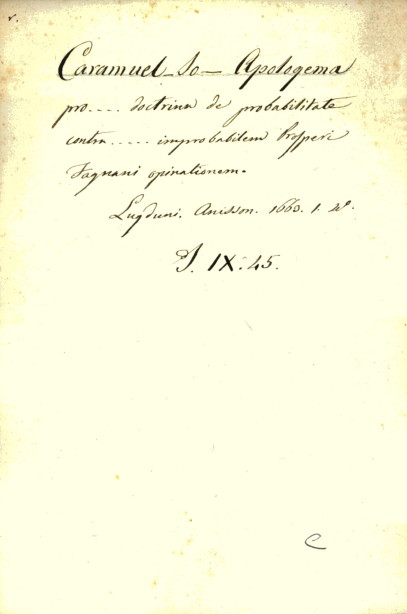 Caramuel - Io - Apologema
pro .... doctrina de probabilitate
contra ..... improbabilem Prosperi
Fagnani opinationem.
Lugduni. Anisson. 1663. 1. 4º.
J. IX. 45.
C